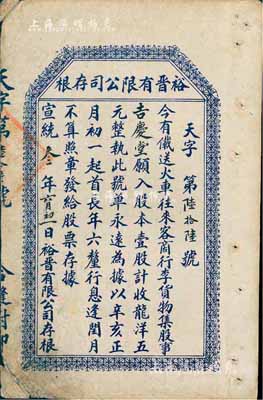 裕晋有限公司存根
天字第陸拾陸號
今有儀送火車往來客商行李貨物集股事
吉慶堂願入股本壹股計收龍洋五
元整執此號單永遠為據以辛亥正
月初一起首長年六釐行息逢閏月
不算照章發給股票存據
宣統叁年肓初一日裕晋有限公司存根
天字第陸拾陸號